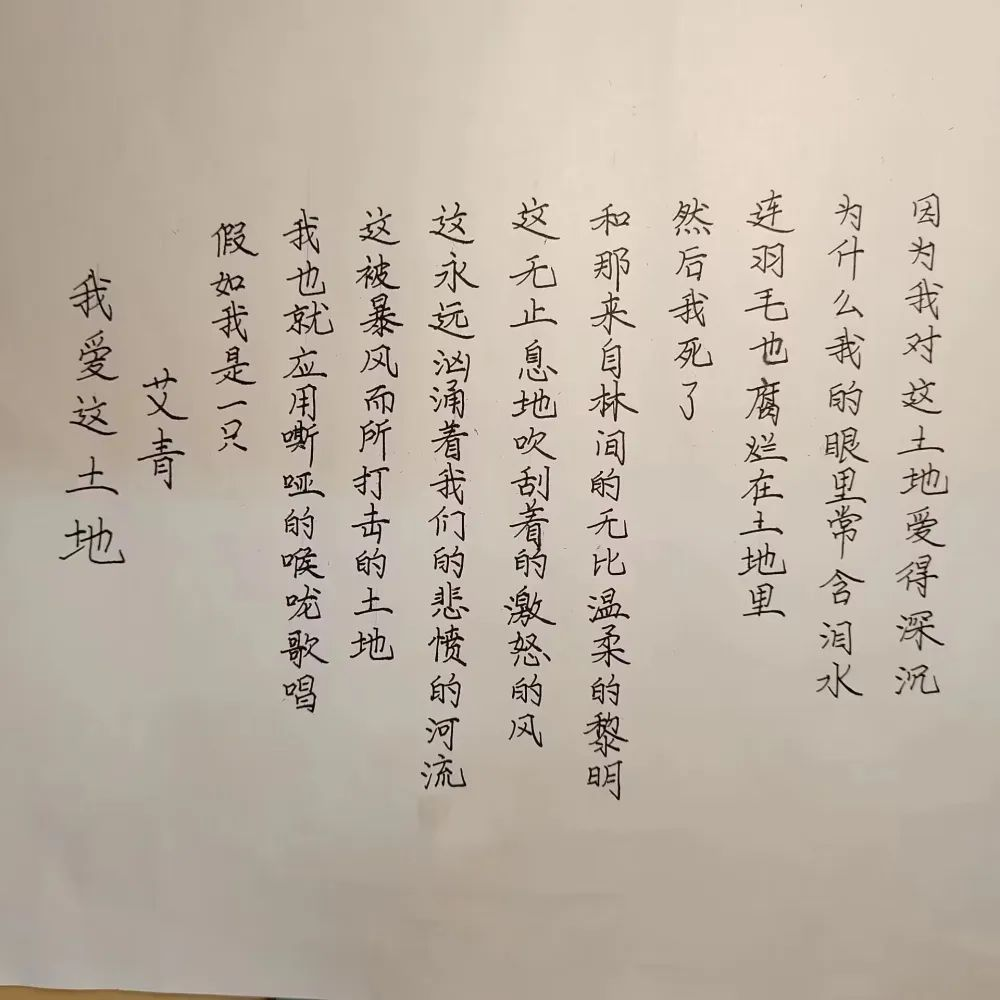 我爱这土地
艾青
假如我是一只
我也就应用嘶哑的喉咙歌唱
这被暴风而所打击的土地
这永远汹涌着我们的悲愤的河流
这无止息地吹刮着的激怒的风
和那来自林间的无比温柔的黎明
然后我死了
连羽毛也腐烂在土地里
为什么我的眼里常含泪水
因为我对这土地爱得深沉